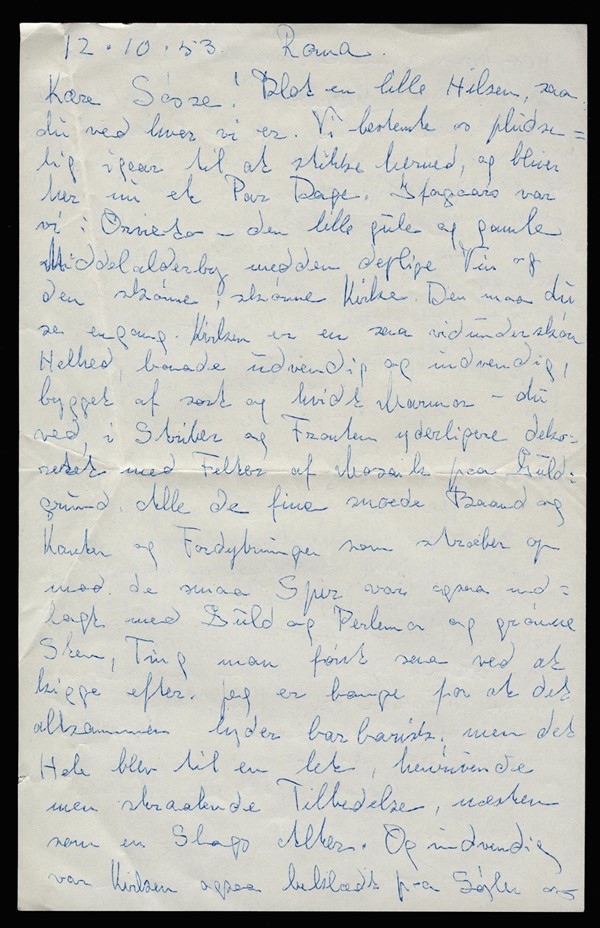 12.10.53. Roma.
Kære Sösse! Blot en lille Hilsen, saa
du ved hvor vi er. Vi bestemte os pludse=
lig igaar til at stikke herned, og bliver
her nu et Par Dage. Ifagaars var
vi i Orvieto – den lille gule og gamle
Middelalderby med den dejlige Vin og
den skönne, skönne Kirke. Den maa du
se engang. Kirken er en saa vidunderskön
Helhed, baade udvendig og indvendig,
bygget af sort og hvidt Marmor – du
ved, i Striber og Fronten yderligere deko-
reret med Felter af Mosaik paa Guld=
grund. Alle de fine snoede Baand og
Kanter og Fordybninger som stræber op
mod de smaa Spir var ogsaa ind=
lagt med Guld og Perlemor og grönne
Sten, Ting man först saa ved at
kigge efter. Jeg er bange for at det
altsammen lyder barbarisk, men det
Hele blev til en let, henrivende
men straalende Tilbedelse, næsten
som en Slags Alter. Og indvendig
var Kirken ogsaa beklædt paa Söjler os